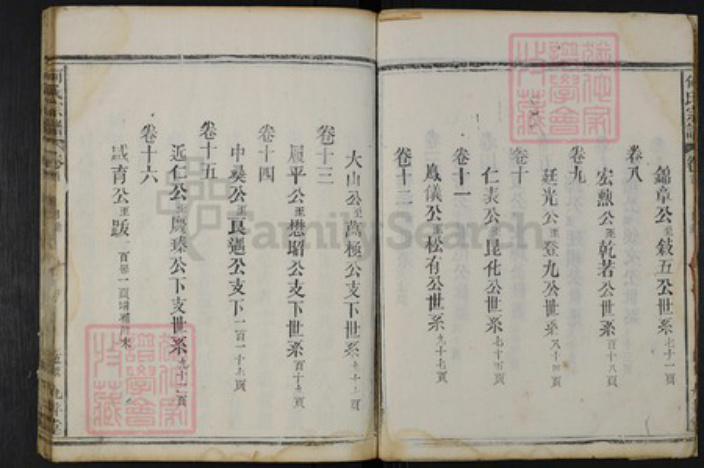 何氏宗譜
錦章公至敍五公世系七十一頁
卷八
宏勲公至乾若公世系百十八頁
卷九
廷光公至登九公世系八十四頁
卷十
仁表公至昆化公世系七十五頁
卷十一
鳳儀公至松有公世系九十七頁
卷十二
大山公至萬極公支下世系九十二頁
卷十三
履平公至懋昭公支下世系百十九頁
卷十四
中美公至良選公支下一百一十九頁
卷十五
近仁公至慶臻公支下世系九十二頁
卷十六
盛育公至跋
何氏宗譜
FamilySearch